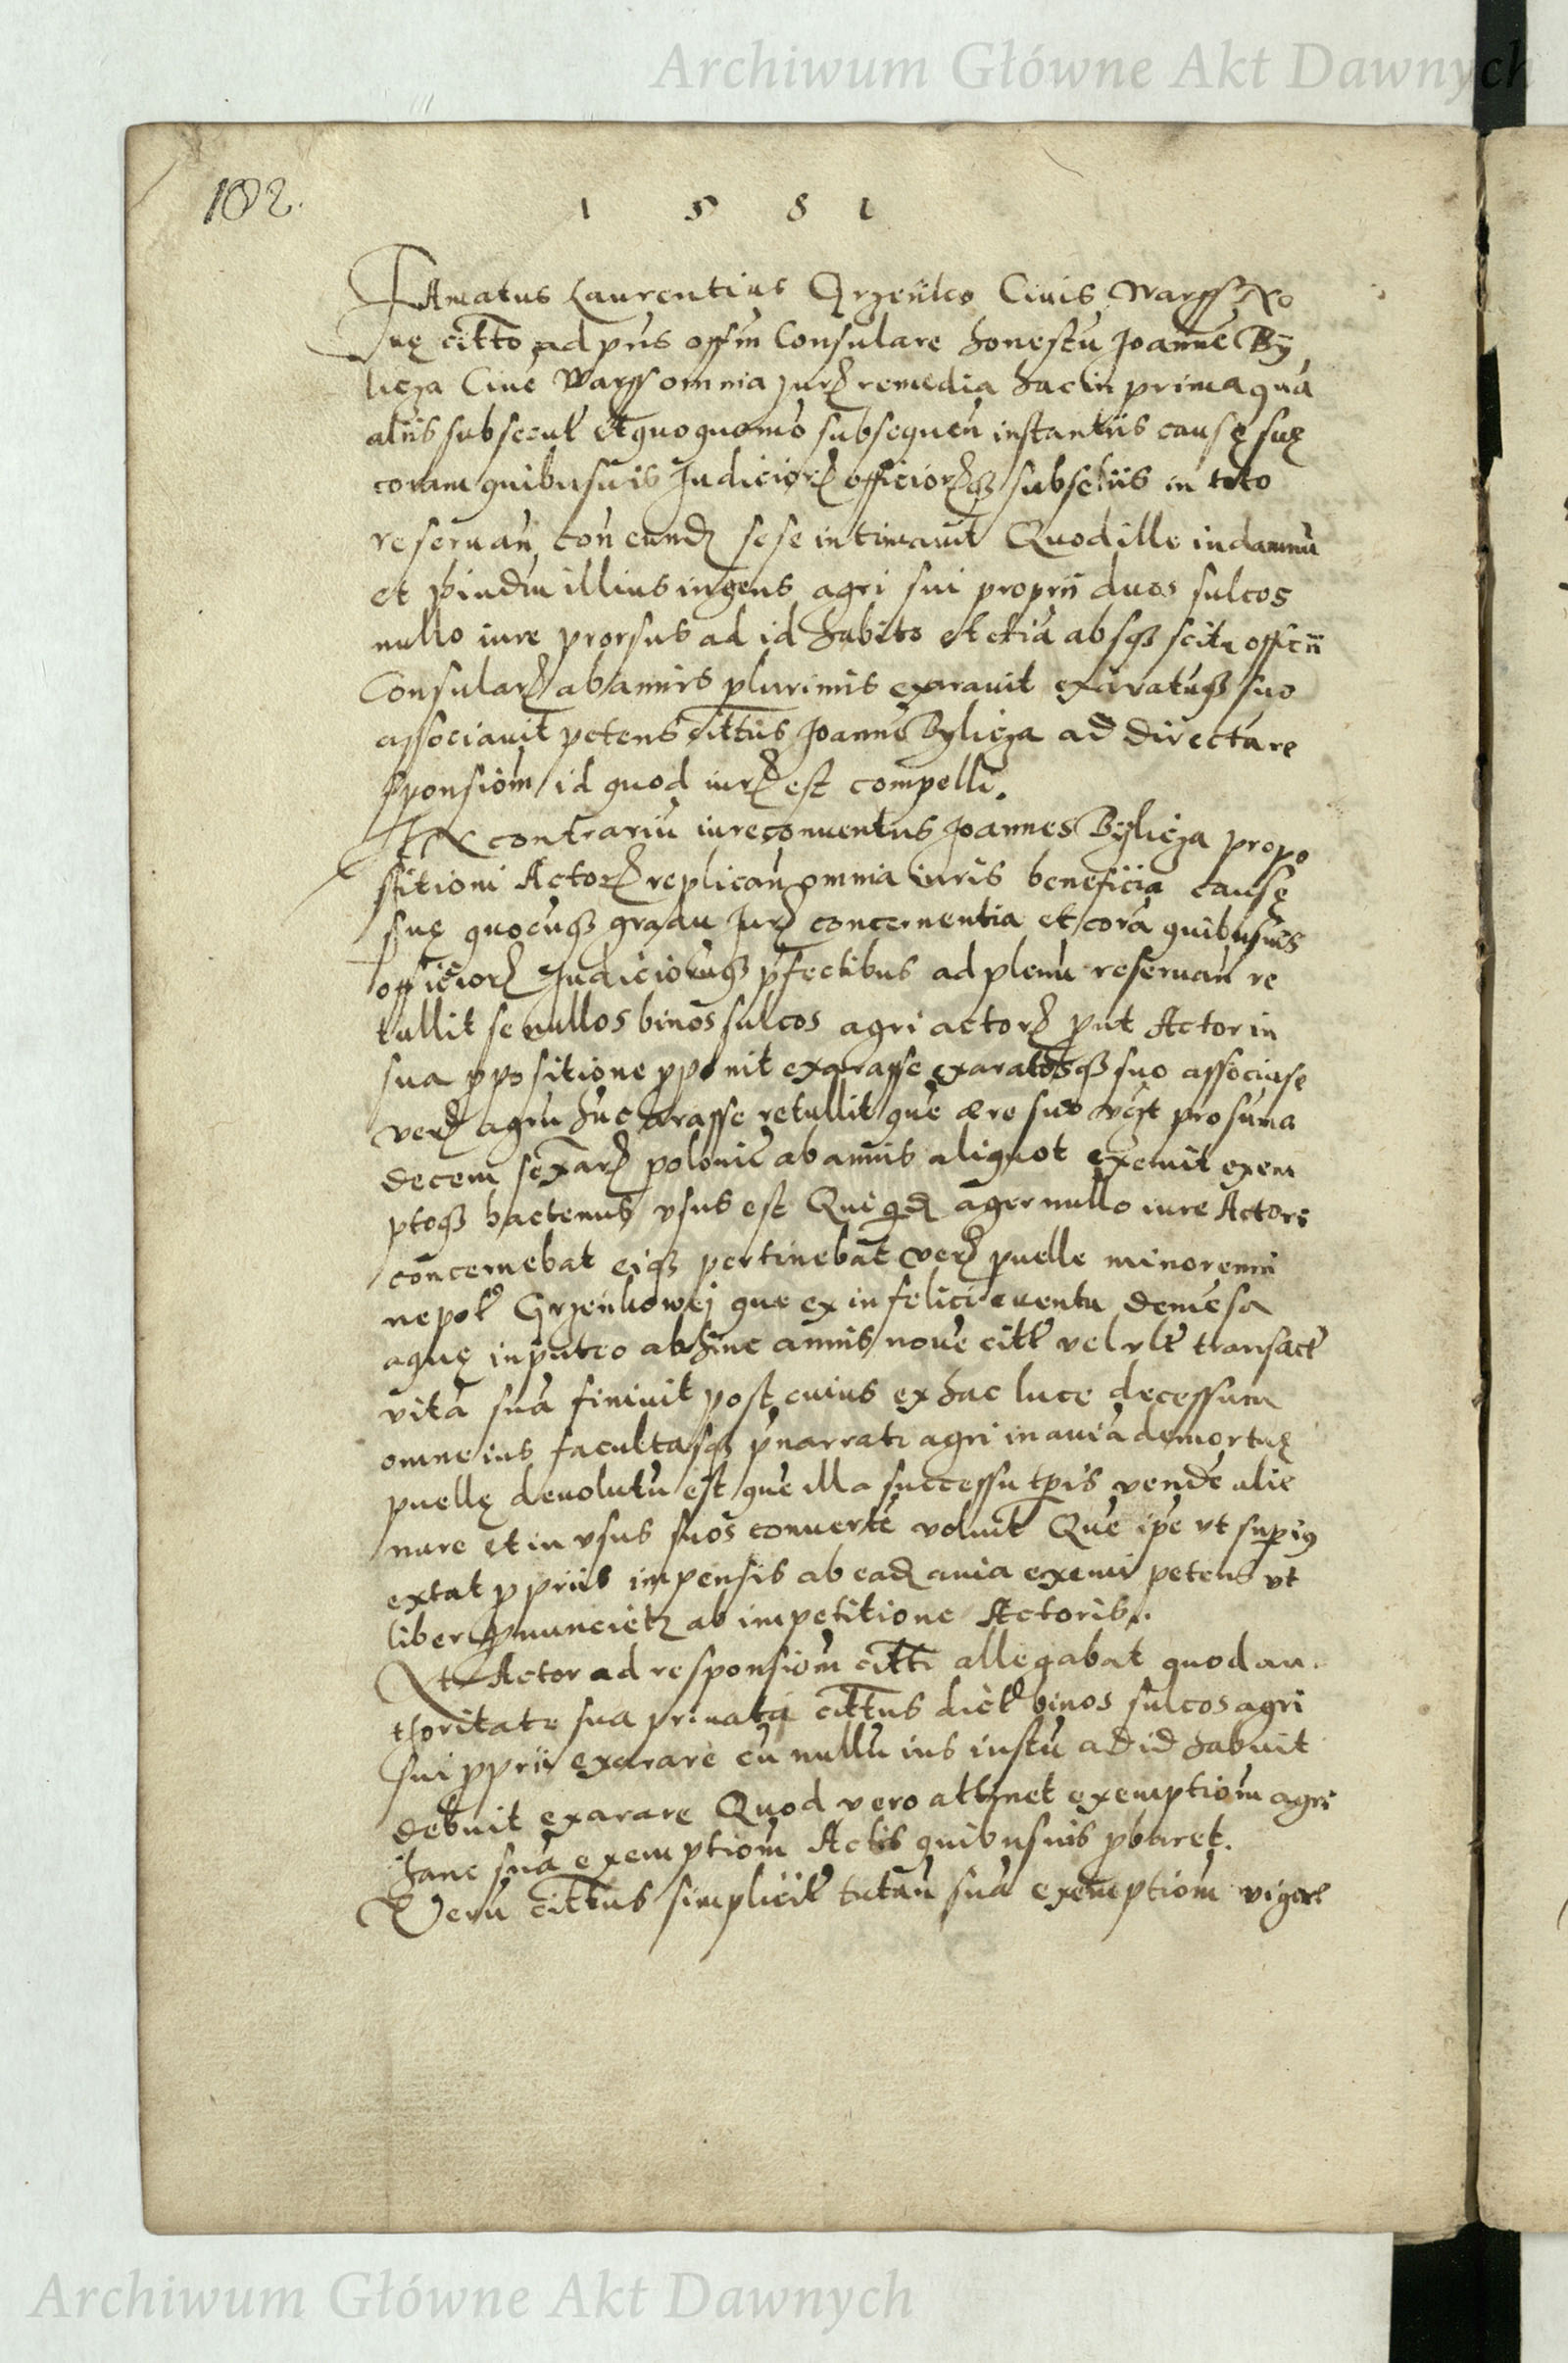 Archiwum Główne Akt Dawnych
182.
1 5 8 1
FAmatus Laurentius Grzenko Ciuis Warss No
ne citto ad pñs offm Consulare honestũ Joannẽ By
licza Ciuẽ Warss omnia jurꝭ remedia hac in prima quã
aliis subsecut̃ et quoquomõ subsequeñ instantiis causę suę
coram quibusuis Judiciorꝭ officiorꝭqꝫ subseliis in toto
reseruañ con eundꝭ sese intimauit Quod ille in damnũ
et p̃iudm illius ingens agri sui proprii duos sulcos
nullo iure prorsus ad id habito et etiã absqꝫ scitu officii
Consularꝭ ab annis plurimis exarauit exaratũqꝫ suo
associauit petens cittus Joannẽ Bylicza ad directã re
sponsiom̃ id quod iurꝭ est compelli.
EX contrariũ iure conuentus Joannes Bylicza propo
sitioni Actorꝭ replicañ omnia iuris beneficia causę
suę quocũqꝫ gradu Jurꝭ concernentia et corã quibusuis
officiorꝭ Judiciorũqꝫ p̃fectibus ad plenũ reseruañ re
tullit se nullos binos sulcos agri actorꝭ ꝓut Actor in
sua ꝓpositione ꝓponit exarasse exaratosqꝫ suo associasse
verꝭ agrũ hũc arasse retullit quẽ ære suo pro sũma
decem sexarꝭ polonic̃ ab annis aliquot exemit exem
ptoqꝫ hactenus vsus est Qui qͥdꝭ ager nullo iure Actori
concernebat eiqꝫ pertinebat verꝭ puelle minorenni
nepot̃ Grzenkowej que ex infelici euentu demersa
aquę in puteo abhinc annis nouẽ citr̃ vel vlt̃ transact̃
vitã suã finiuit post cuius ex hac luce decessum
omne ius facultasqꝫ p̃narrati agri in auiã demortuę
puellę deuolutũ est quẽ illa successu tp̃is vendẽ alie
nare et in vsus suos conuertẽ voluit Quẽ ip̃e vt superiꝰ
extat ꝓpriis impensis ab eadꝭ auia exemi petens vt
liber ꝓnuncietꝛ ab impetitione Actoris.
Et Actor ad responsiom̃ citti allegabat quod au
thoritate sua priuata cittus dict̃ binos sulcos agri
sui ꝓprii exarare cũ nullũ ius iustũ ad id habuit
debuit exarare Quod vero attinet exemptiom̃ agri
hanc suã exemptiom̃ Actis quibusuis ꝓbaret.
Verũ cittus simplicit̃ tutañ suã exemptiom̃ vigore
Archiwum Główne Akt Dawnych